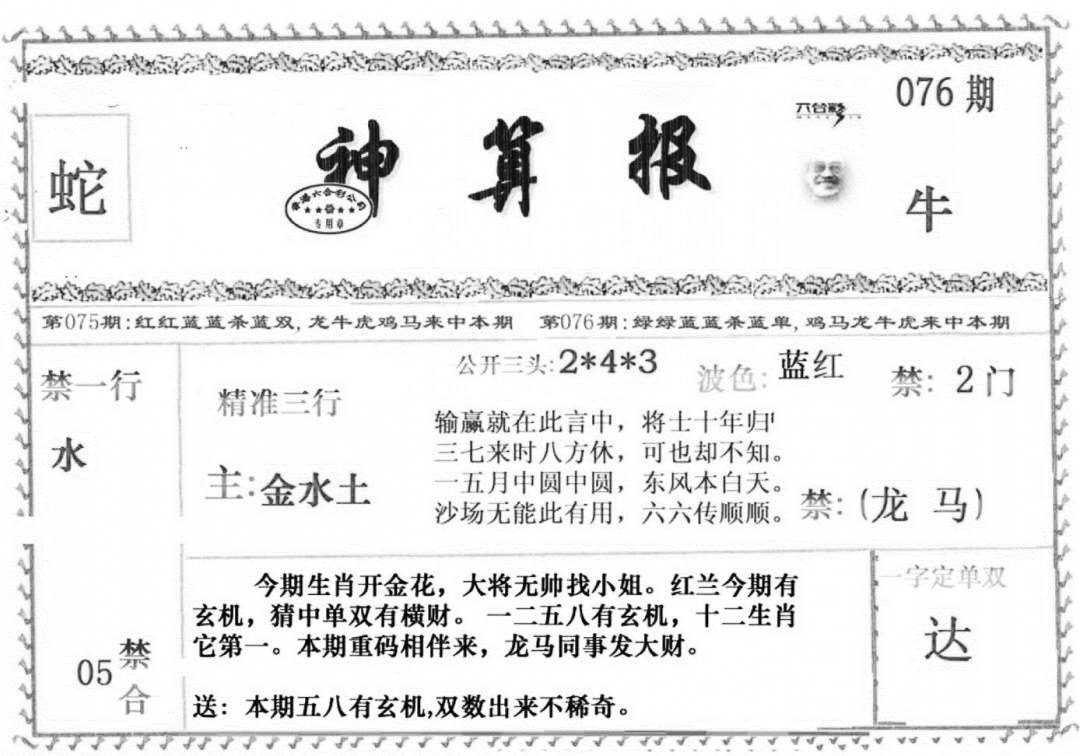 076期
六合彩
蛇
神算报
香港六合彩公司
专用章
牛
第075期:红红蓝蓝杀蓝双,龙牛虎鸡马来中本期 第076期:绿绿蓝蓝杀蓝单,鸡马龙牛虎来中本期
禁一行
水
精准三行
主:金水土
公开三头:2*4*3
波色:蓝红
禁:2门
输赢就在此言中，将士十年归
三七来时八方休，可也却不知。
一五月中圆中圆，东风本白天。
沙场无能此有用，六六传顺顺。
禁:(龙 马)
05
禁合
今期生肖开金花，大将无帅找小姐。红兰今期有
玄机，猜中单双有横财。一二五八有玄机，十二生肖
它第一。本期重码相伴来，龙马同事发大财。
送：本期五八有玄机,双数出来不稀奇。
一字定单双
达